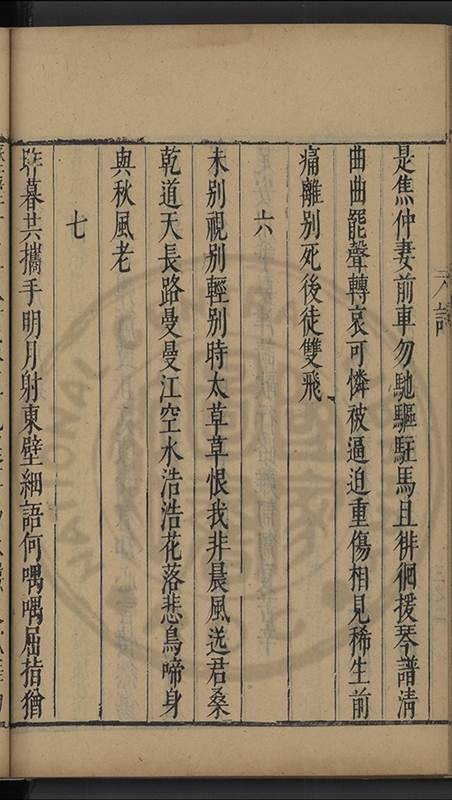 是焦仲妻前車勿馳驅駐馬且徘徊援琴譜清
曲曲罷聲轉哀可憐被逼迫重傷相見稀生前
痛離別死後徒雙飛
六
未別視別輕別時太草草恨我非晨風送君桑
乾道天長路曼曼江空水浩浩花落悲鳥啼身
與秋風老
七
昨暮共攜手明月射東壁細語何喁喁屈指猶